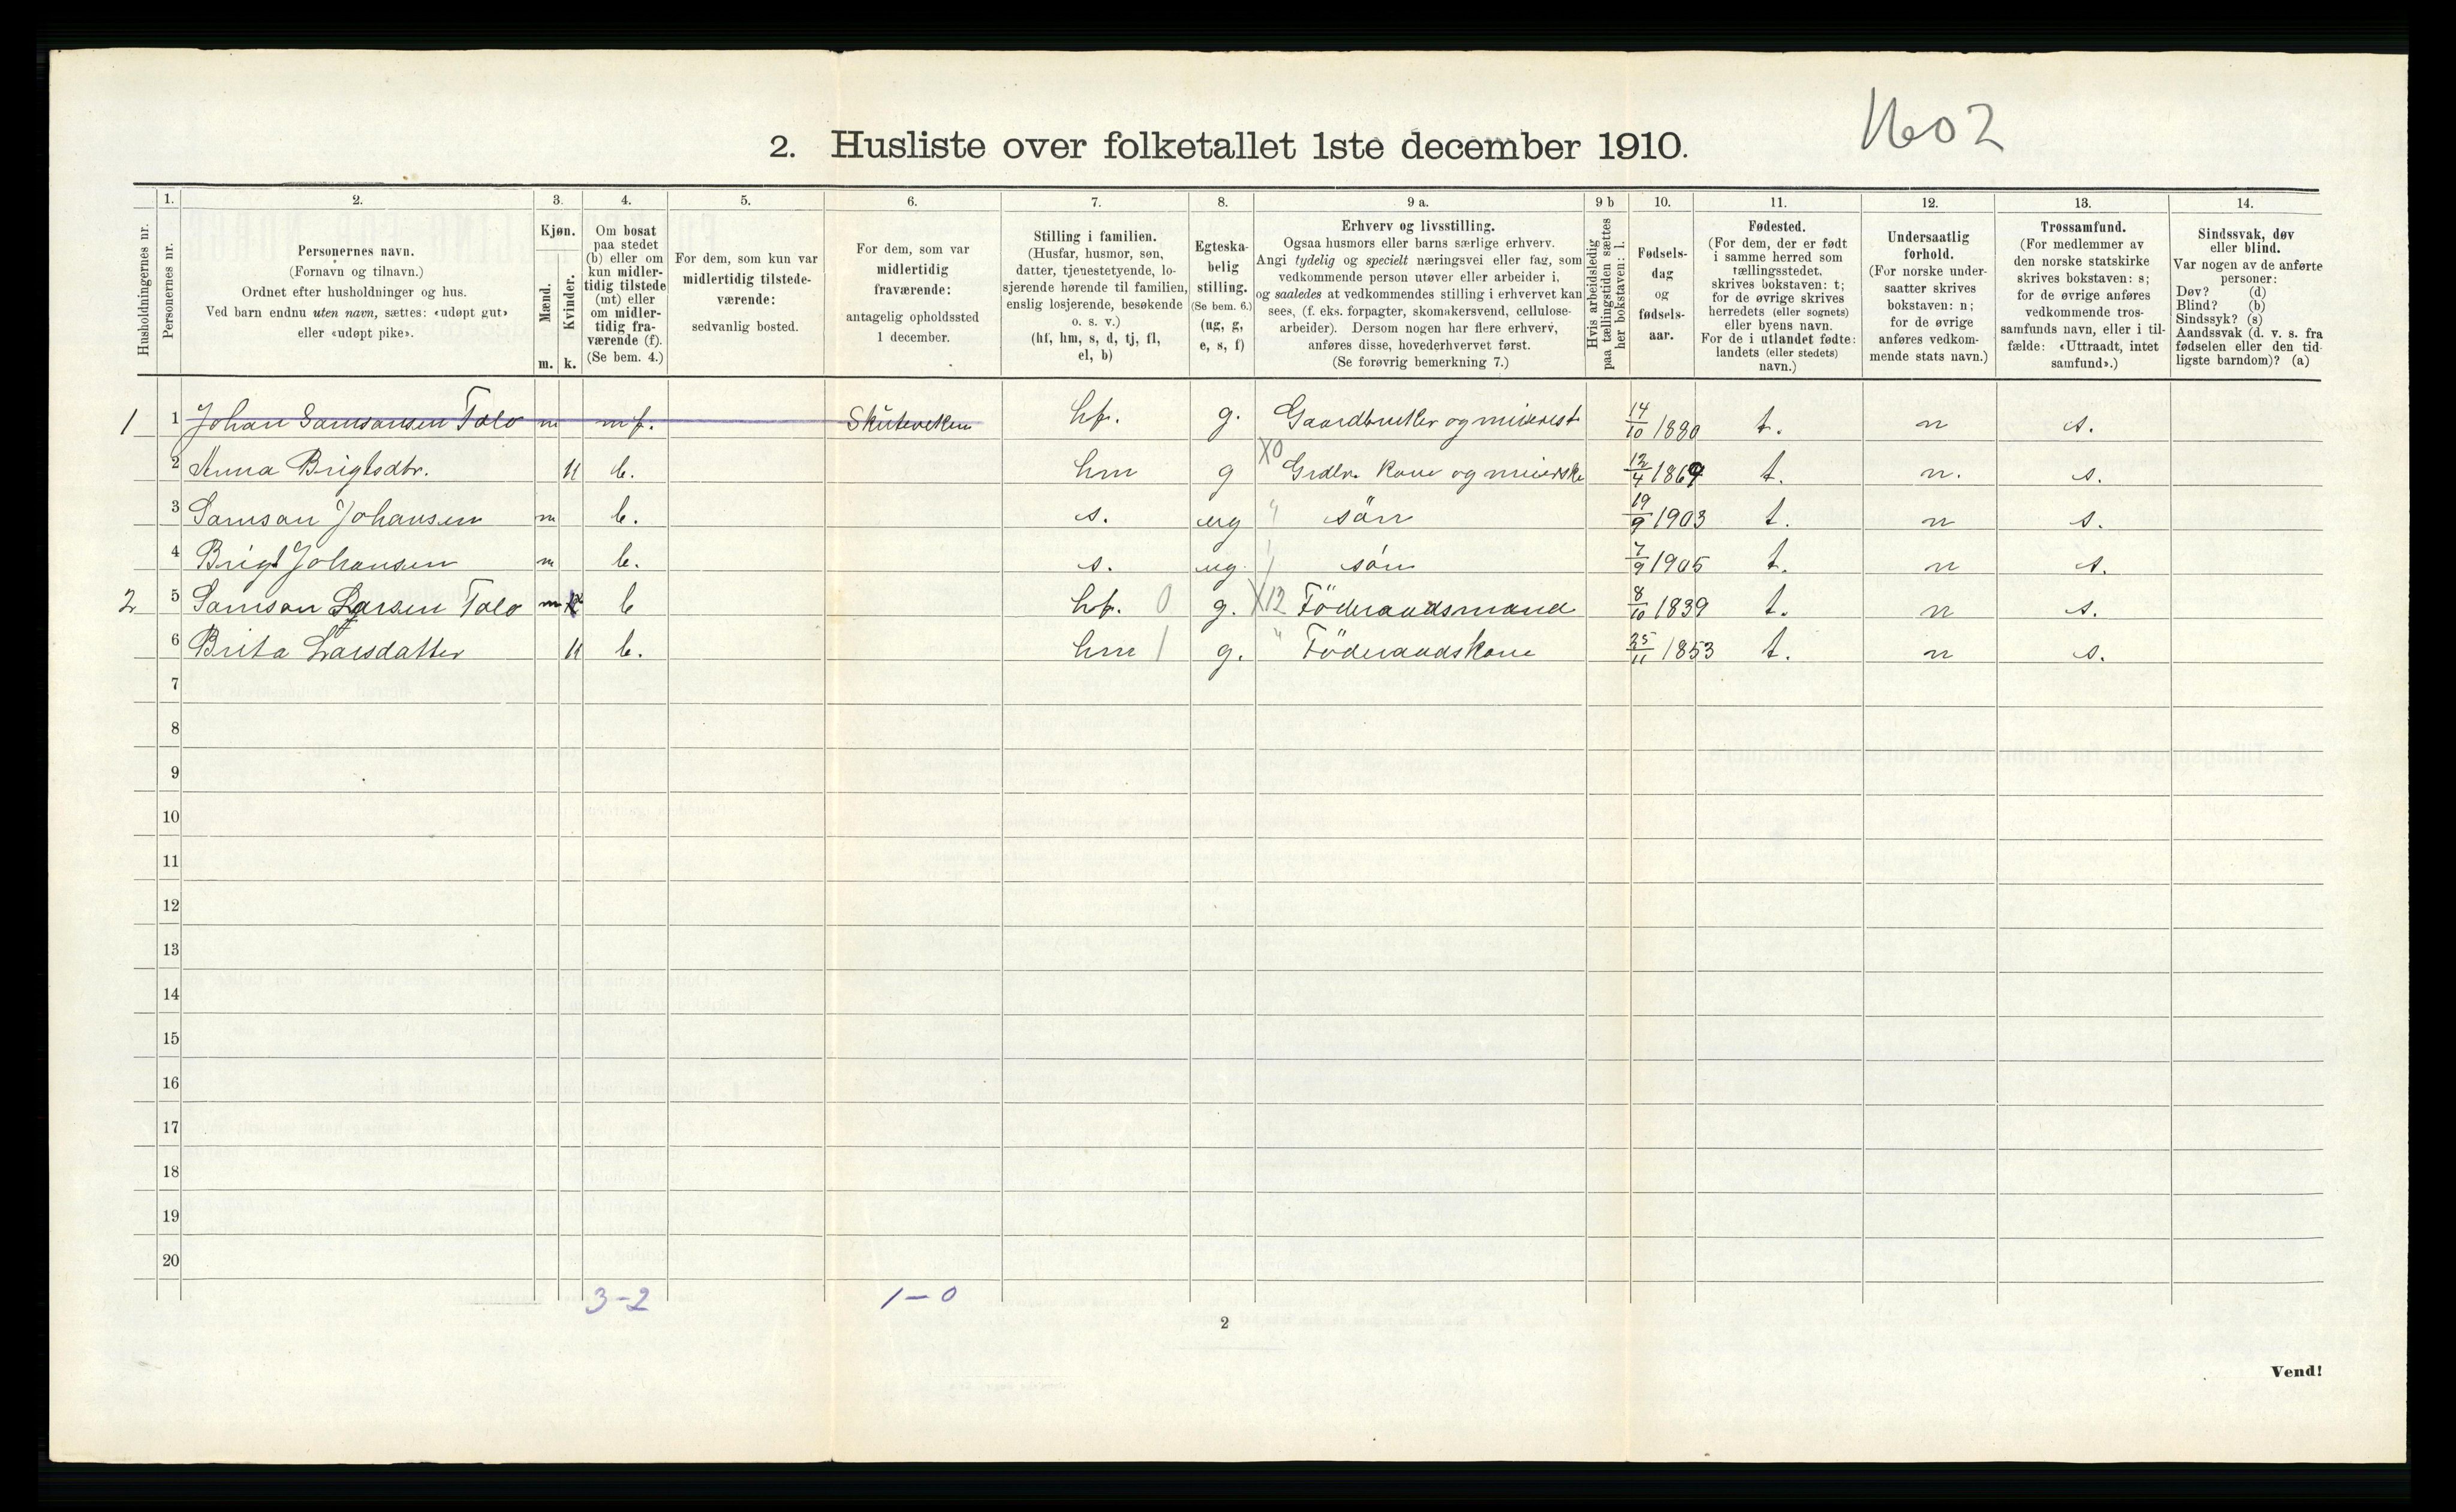 1602
2. Husliste over folketallet 1ste december 1910.
Husholdningernes nr.
1. Personernes nr.
2. Personernes navn. (Fornavn og tilnavn.) Ordnet efter husholdninger og hus. Ved barn endnu uten navn, sættes: «udøpt gut» eller «udøpt pike».
3. Kjøn. Mænd. m. Kvinder. k.
4. Om bosat paa stedet (b) eller om kun midlertidig tilstede (mt) eller om midlertidig fraværende (f). (Se bem. 4.)
5. For dem, som kun var midlertidig tilstedeværende: sedvanlig bosted.
6. For dem, som var midlertidig fraværende: antagelig opholdssted 1 december.
7. Stilling i familien. (Husfar, husmor, søn, datter, tjenestetyende, losjerende hørende til familien, enslig losjerende, besøkende o. s. v.) (hf, hm, s, d, tj, fl, el, b)
8. Egteskabelig stilling. (Se bem. 6.) (ug, g, e, s, f)
9 a. Erhverv og livsstilling. Ogsaa husmors eller barns særlige erhverv. Angi tydelig og specielt næringsvei eller fag, som vedkommende person utøver eller arbeider i, og saaledes at vedkommendes stilling i erhvervet kan sees, (f. eks. forpagter, skomakersvend, cellulosearbeider). Dersom nogen har flere erhverv, anføres disse, hovederhvervet først. (Se forøvrig bemerkning 7.)
9 b Hvis arbeidsledig paa tællingstiden sættes her bokstaven: l.
10. Fødselsdag og fødselsaar.
11. Fødested. (For dem, der er født i samme herred som tællingsstedet, skrives bokstaven: t; for de øvrige skrives herredets (eller sognets) eller byens navn. For de i utlandet fødte: landets (eller stedets) navn.)
12. Undersaatlig forhold. (For norske undersaatter skrives bokstaven: n; for de øvrige anføres vedkommende stats navn.)
13. Trossamfund. (For medlemmer av den norske statskirke skrives bokstaven: s; for de øvrige anføres vedkommende trossamfunds navn, eller i tilfælde: «Uttraadt, intet samfund».)
14. Sindssvak, døv eller blind. Var nogen av de anførte personer: Døv? (d) Blind? (b) Sindssyk? (s) Aandssvak (d. v. s. fra fødselen eller den tidligste barndom)? (a)
1 1 Johan Samsonsen Tolo m f. Skuteviken hf. g. Gaardbruker og meierest 14/10 1880 t. n s.
2 Anna Brigtsdtr. k b. hm g X0 Grdbr. kone og meierske 12/4 1869 t. n. s.
3 Samson Johansen m b. s. ug " sön 19/9 1903 t. n s.
4 Brigt Johansen m b. s. ug " sön 7/9 1905 t. n s.
2 5 Samson Larsen Tolo m b hf. 0 g. X12 Föderaadsmand 8/10 1839 t. n s.
6 Brita Larsdatter k b. hm 1 g. " Föderaadskone 25/11 1853 t. n s.
7
8
9
10
11
12
13
14
15
16
17
18
19
20
3-2 1-0
2
Vend!